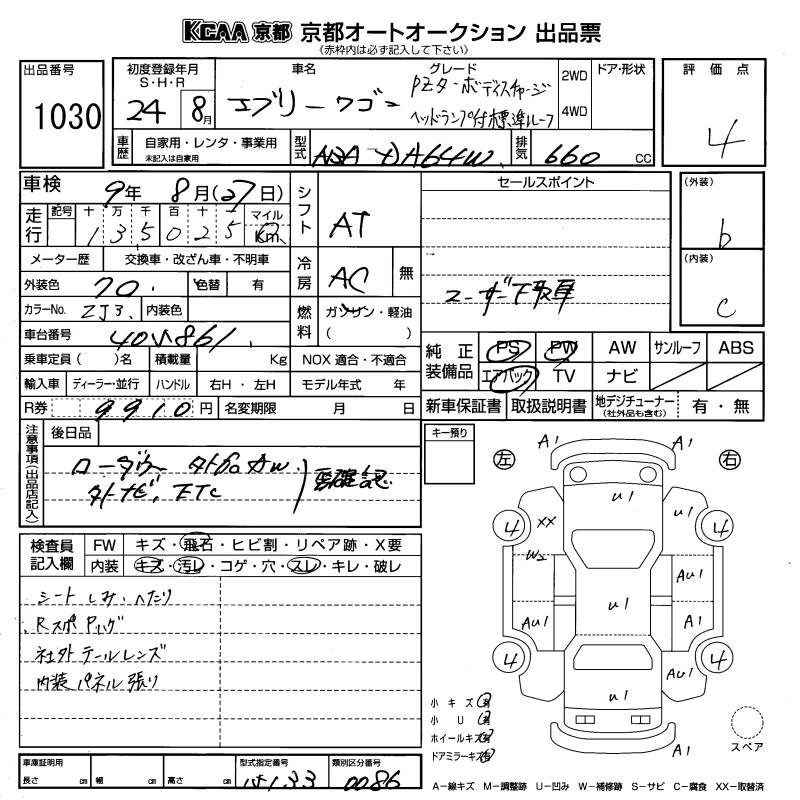 KCAA 京都 京都オートオークション 出品票
《赤枠内は必ず記入して下さい》
出品番号
1030
初度登録年月
S・H・R
24 8月
車名
エブリーワゴン
グレード
PZターボディスチャージ
ヘッドランプ付標準ルーフ
2WD
4WD
ドア・形状
評価点
4
車歴
自家用・レンタ・事業用
未記入は自家用
型式
ABA-DA64W
排気
660 CC
車検
9年 8月(27日)
走行
記号 十 万 千 百 十 一 マイル
1 3 5 0 2 5 Km
メーター歴 交換車・改ざん車・不明車
外装色 色替 有
カラーNo. ZJ3 内装色
車台番号
乗車定員( )名 積載量 Kg
輸入車 ディーラー・並行 ハンドル 右H・左H
R券 9910円 名変期限 月 日
シフト AT
冷房 AC 無
燃料 ガソリン・軽油
( )
NOX 適合・不適合
モデル年式 年
セールスポイント
ユーザー下取車
(外装)
b
(内装)
C
純正装備品
PS PW AW サンルーフ ABS
エアバック TV ナビ
新車保証書 取扱説明書 地デジチューナー
(社外品も含む)
有・無
注意事項(出品店記入)
後日品
ローダウン 外14AW
外ナビ、ETC
要確認
キー預り
左 右
検査員記入欄
FW キズ・飛石・ヒビ割・リペア跡・X要
内装 キズ・汚レ・コゲ・穴・スレ・キレ・破レ
シートしみ・へたり
Rスポ Pハグ
社外テールレンズ
内装パネル張り
A1 A1
U1
XX U1
4 4
W2
AU1
U1
AU1 A1
4 4
AU1
U1
A1
小キズ有
小U有
ホイールキズ有
ドアミラーキズ有
スペア
車庫証明用
長さ cm 幅 cm 高さ cm
型式指定番号
15133
類別区分番号
0086
A-線キズ M-調整跡 U-凹み W-補修跡 S-サビ C-腐食 XX-取替済